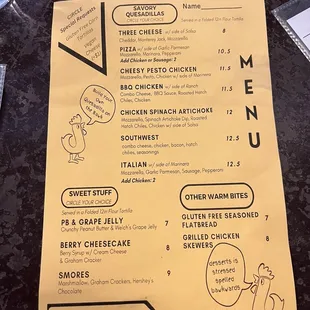 CIRCLE
Special Requests
Gluten Free Corn
Tortillas
Vegan
Cheese
SAVORY
QUESADILLAS
CIRCLE YOUR CHOICE
Name
Served in a Folded 12in Flour Tortilla
THREE CHEESE w/ side of Salsa 8
Cheddar, Monterey Jack, Mozzarella
PIZZA w/ side of Garlic Parmesan 10.5
Mozzarella, Marinara, Pepperoni
Add Chicken or Sausage: 2
CHEESY PESTO CHICKEN 11.5
Mozzarella, Pesto, Chicken w/ side of Marinara
BBQ CHICKEN w/ side of Ranch 11.5
Combo Cheese, BBQ Sauce, Roasted Hatch
Chiles, Chicken
CHICKEN SPINACH ARTICHOKE 12
Mozzarella, Spinach Artichoke Dip, Roasted
Hatch Chiles, Chicken w/ side of Salsa
SOUTHWEST 12.5
combo cheese, chicken, bacon, hatch
chiles, seasonings
ITALIAN w/ side of Marinara 12.5
Mozzarella, Garlic Parmesan, Sausage, Pepperoni
Add Chicken: 2
MENU
Build Your
Own
Quesadilla on
the Back
SWEET STUFF
CIRCLE YOUR CHOICE
Served in a Folded 12in Flour Tortilla
PB & GRAPE JELLY 7
Crunchy Peanut Butter & Welch's Grape Jelly
BERRY CHEESECAKE 8
Berry Syrup w/ Cream Cheese
& Graham Cracker
SMORES 9
Marshmallow, Graham Crackers, Hershey's
Chocolate
OTHER WARM BITES
GLUTEN FREE SEASONED 7
FLATBREAD
GRILLED CHICKEN 8
SKEWERS
desserts is
stressed
spelled
backwards